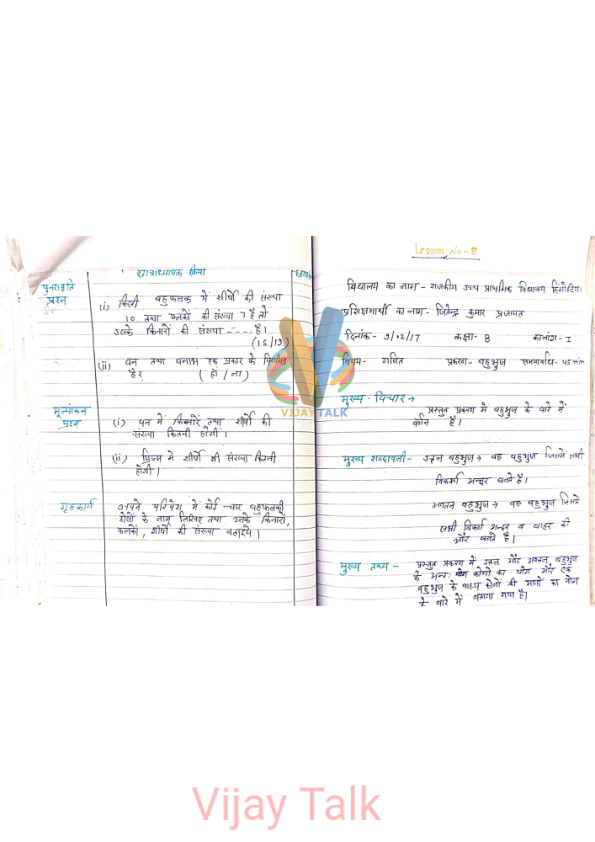 छात्राध्यापक क्रिया
पुनरावृति
प्रश्न
(i) किसी बहुफलक में शीर्षों की संख्या
10 तथा फलकों की संख्या 7 है तो
उसके किनारों की संख्या ..... है।
(15/19)
(ii) घन तथा घनाभ एक प्रकार के प्रिज्म
है? (हाँ/ना)
मूल्यांकन
प्रश्न
(i) घन में किनारें तथा शीर्षों की
संख्या कितनी होगी।
(ii) प्रिज्म में शीर्षों की संख्या कितनी
होगी।
गृहकार्य
अपने परिवेश में कोई चार बहुफलकी
ठोसों के नाम लिखिए तथा उनके किनारों,
फलकों, शीर्षों की संख्या बताइये।
Lesson No-8
विद्यालय का नाम - राजकीय उच्च प्राथमिक विद्यालय
प्रशिक्षणार्थी का नाम - जितेन्द्र कुमार प्रजापत
दिनांक - 9/02/17 कक्षा - 8 कालांश - I
विषय - गणित प्रकरण - बहुभुज समयावधि - 45 min
मुख्य विचार →
प्रस्तुत प्रकरण में बहुभुज के बारे में
है।
मुख्य शब्दावली - उत्तल बहुभुज → वह बहुभुज जिसके सभी
विकर्ण अन्दर बनते है।
अवतल बहुभुज → वह बहुभुज जिसके
सभी विकर्ण अन्दर व बाहर की
और बनते है।
मुख्य तथ्य - प्रस्तुत प्रकरण में उत्तल और अवतल बहुभुज
के अन्तः कोणों का योग और एक
बहुभुज के बाह्य कोणों की मापों का योग
के बारे में बताया गया है।
VIJAY TALK
Vijay Talk